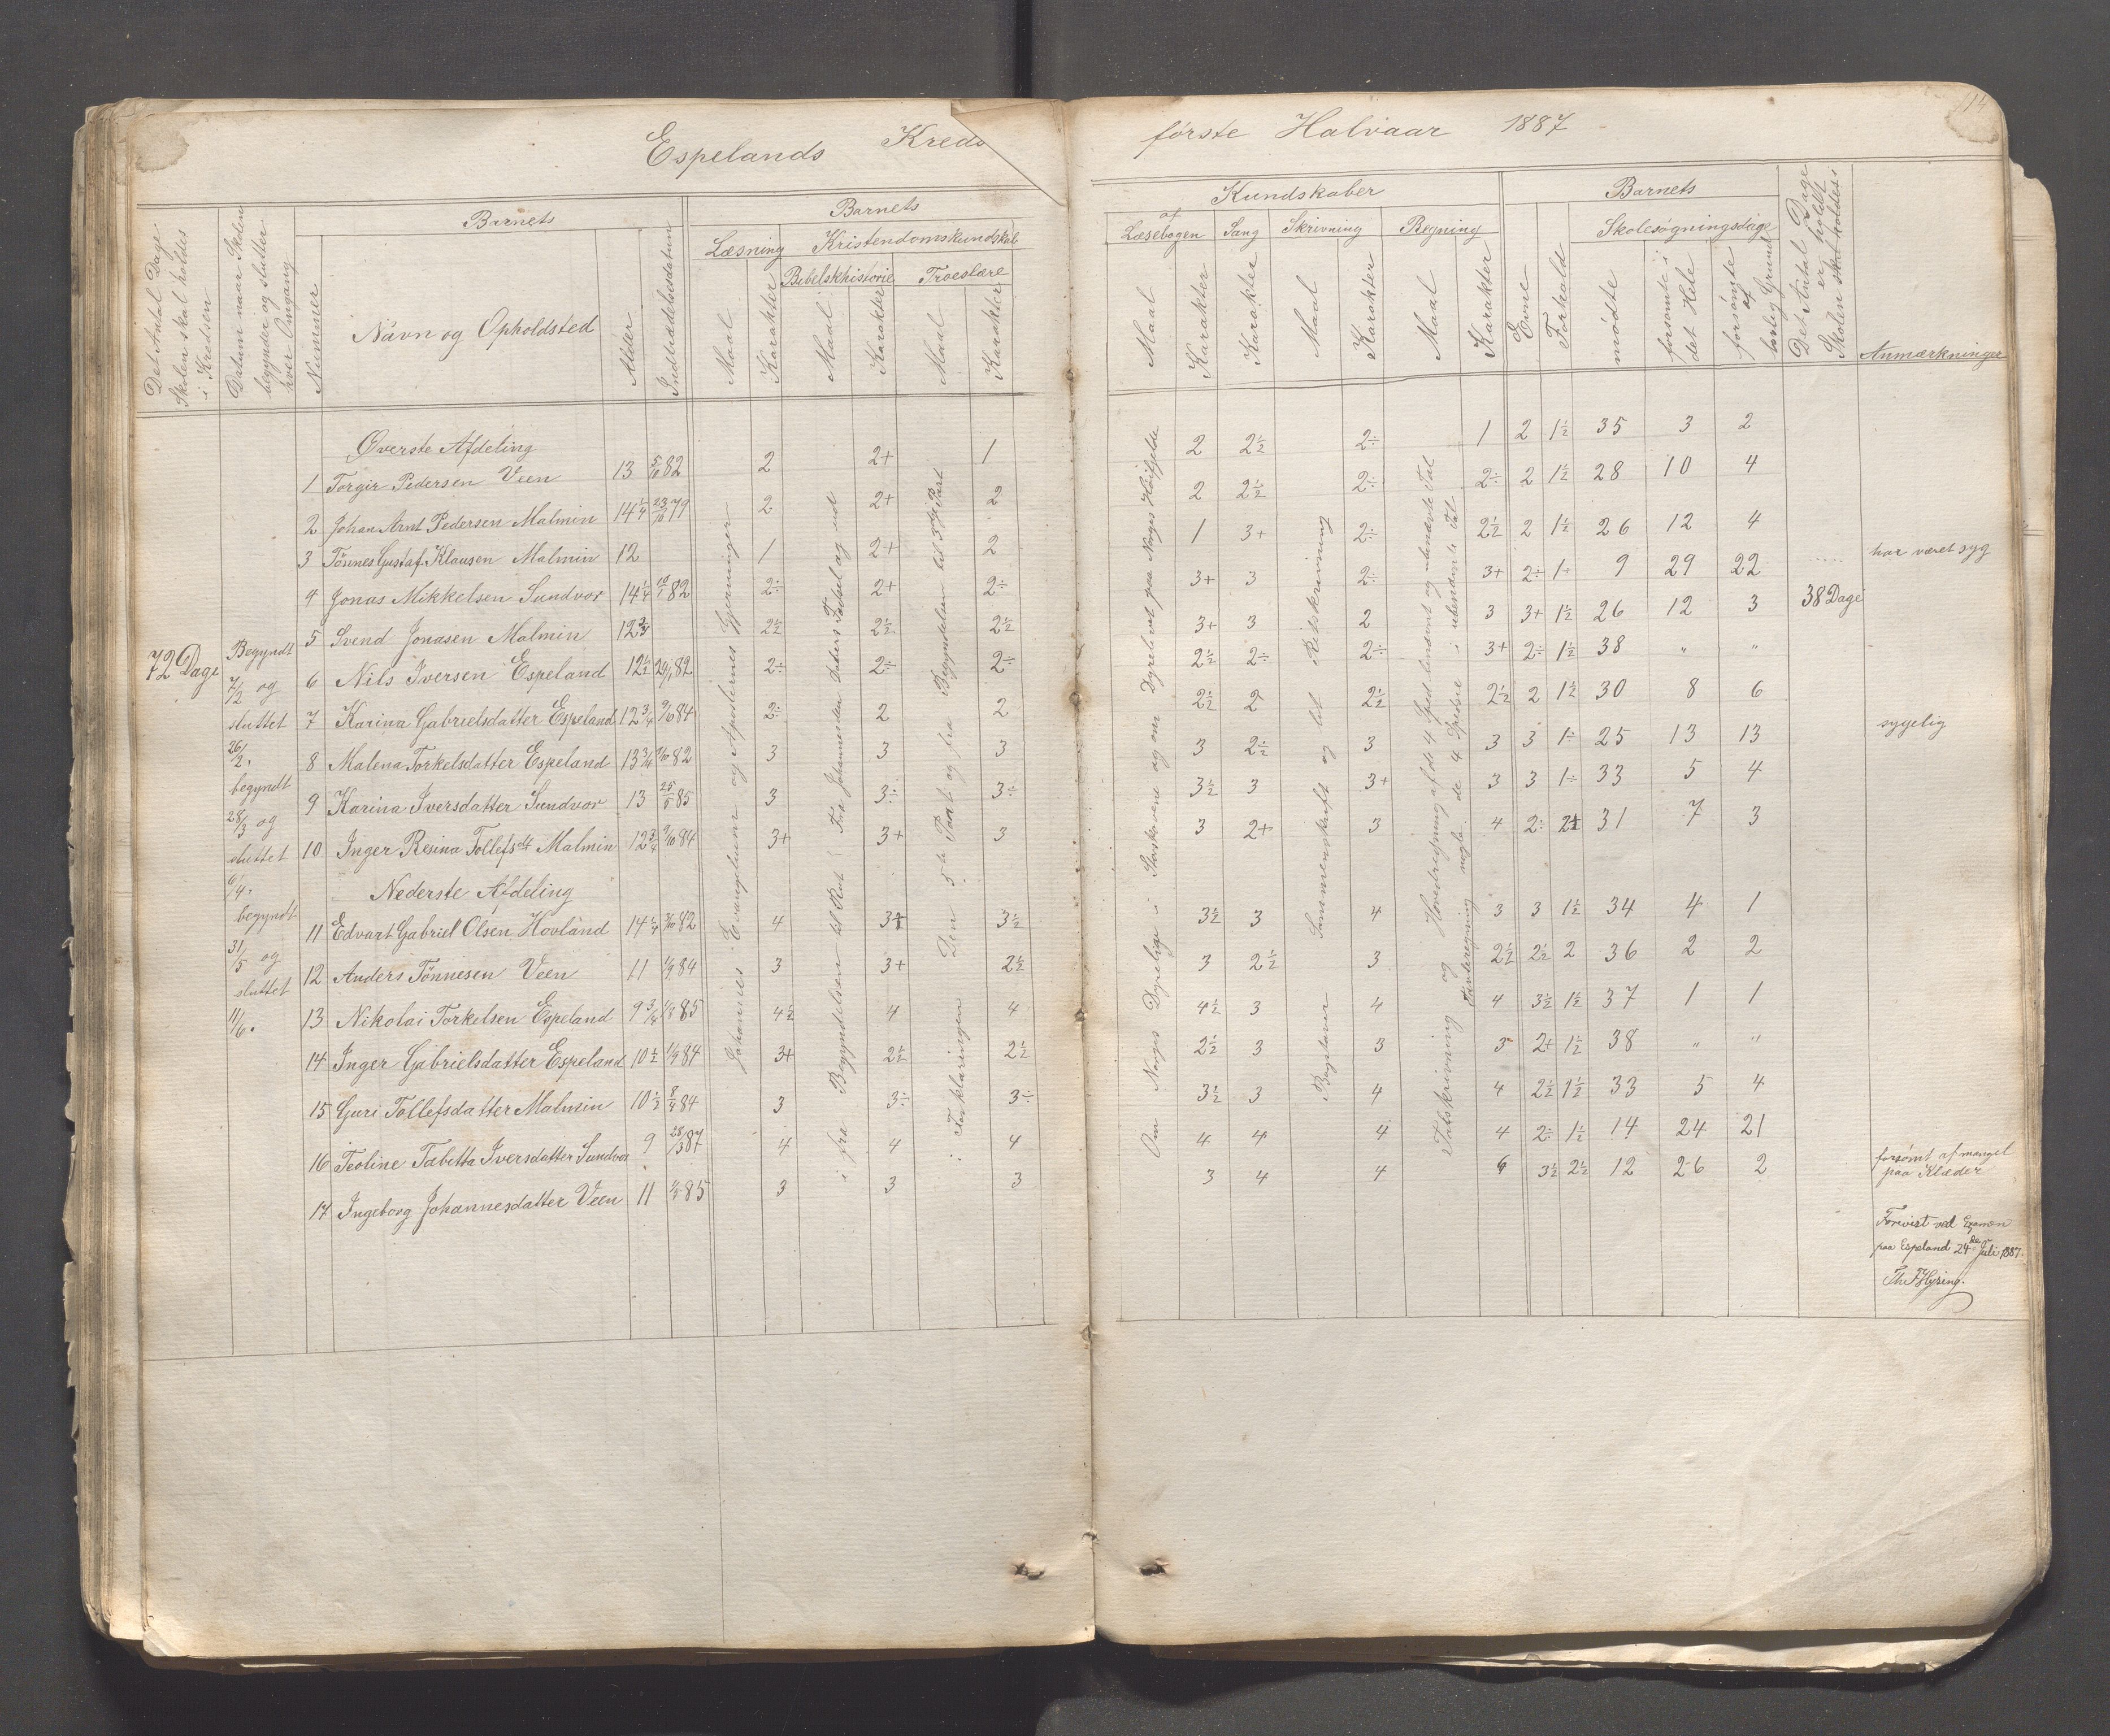 Espelands Kreds
første Halvaar 1887
Det Antal Dage Skolen skal holdes i Kredsen
Datum naar Skolen begynder og slutter hver Omgang
Nummer
Barnets
Navn og Opholdsted
Alder
Indtrædelsesdatum
Barnets
Læsning
Kristendomskundskab
Bibelskhistorie
Troeslære
Maal
Karakter
Maal
Karakter
Maal
Karakter
Kundskaber
af
Læsebogen
Sang
Skrivning
Regning
Maal
Karakter
Karakter
Maal
Karakter
Maal
Karakter
Barnets
Evne
Forhold
Skolesøgningsdage
mødte
forsømte i det Hele
forsømte af lovlig Grund
Det Antal Dage er holdt
Skolen skal holdes i
Anmærkninger
72 Dage
Begyndt
7/2 og
sluttet
26/2,
begyndt
28/3 og
sluttet
6/4,
begyndt
31/5 og
sluttet
11/6.
Øverste Afdeling
1 Torgir Pedersen Veen 13 5/10 82 2 2+ 1 2 2½ 2÷ 1 2 1½ 35 3 2
2 Johan Arnt Pedersen Malmin 14¼ 23/10 79 2 2+ 2 2 2½ 2÷ 2÷ 2 1½ 28 10 4
3 Tønnes Gustaf Klausen Malmin 12 1 2+ 2 1 3+ 2÷ 2½ 2 1½ 26 12 4
4 Jonas Mikkelsen Sundvor 14¼ 10/1 82 2÷ 2+ 2÷ 3+ 3 2÷ 3+ 2÷ 1÷ 9 29 22 har været syg
5 Svend Jonasen Malmin 12¾ 2½ 2½ 2½ 3+ 3 2 3 3+ 1½ 26 12 3 38 Dage
6 Nils Iversen Espeland 12½ 29/1 82 2÷ 2÷ 2÷ 2½ 2÷ 2÷ 3+ 2÷ 1½ 38 " "
7 Karina Gabrielsdatter Espeland 12¾ 9/10 84 2÷ 2 2 2½ 2 2½ 2½ 2 1½ 30 8 6
8 Malena Torkelsdatter Espeland 13¾ 9/10 82 3 3 3 3 2½ 3 3 3 1÷ 25 13 13 sygelig
9 Karina Iversdatter Sundvor 13 25/5 85 3 3÷ 3÷ 3½ 3 3+ 3 3 1÷ 33 5 4
10 Inger Resina Tollefsdt Malmin 12¾ 9/10 84 3+ 3+ 3 3 2+ 3 4 2÷ 31 7 3
Nederste Afdeling
11 Edvart Gabriel Olsen Hovland 14¼ 82 4 3½ 3½ 3 4 3 3 1½ 34 4 1
12 Anders Tønnesen Veen 11 1/9 84 3 3+ 2½ 3 2½ 3 2½ 2½ 2 36 2 2
13 Nikolai Torkelsen Espeland 9¾ 85 4½ 4 4 4½ 3 4 4 3½ 1½ 37 1 1
14 Inger Gabrielsdatter Espeland 10½ 1/9 84 3+ 2½ 2½ 2½ 3 3 3 2+ 1½ 38 " "
15 Guri Tollefsdatter Malmin 10½ 8/9 84 3 3÷ 3÷ 3½ 3 4 4 2½ 1½ 33 5 4
16 Teoline Tabitta Iversdatter Sundvor 9 28/3 87 4 4 4 4 4 4 4 2÷ 1½ 14 24 21
17 Ingeborg Johannesdatter Veen 11 85 3 3 3 3 4 4 3½ 2½ 12 26 2 forsømt af mangel paa Klæder
Johannes Evangelium og Apostlernes Gjerninger
i fra Begyndelsen til Rut. Fra Johannes den Døbers Fødsel og ud
i Forklaringen Den 5te Part og fra Begyndelsen til 3dje Part
Om Norges Dyreliv i Storskovene og om Dyrelivet paa Norges Høifjelde
Bogstaver Sammenskrift og lit Retskrivning
Talskrivning og Hovedregning af de 4 Spd. benævnt og ubenævnte Tal
Tavleregning nogle de 4 i ubenævnte Tal
Forevist ved Examen
paa Espeland 24de Juli 1887.
Th. F. Hysing.